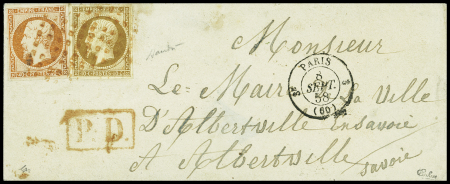 EMPIRE FRANC
Monsieur
PARIS
8
SEPT.
58
(60)
Le Maire de La Ville
P.D.
D'Albertville En Savoie
A Albertville
Savoie